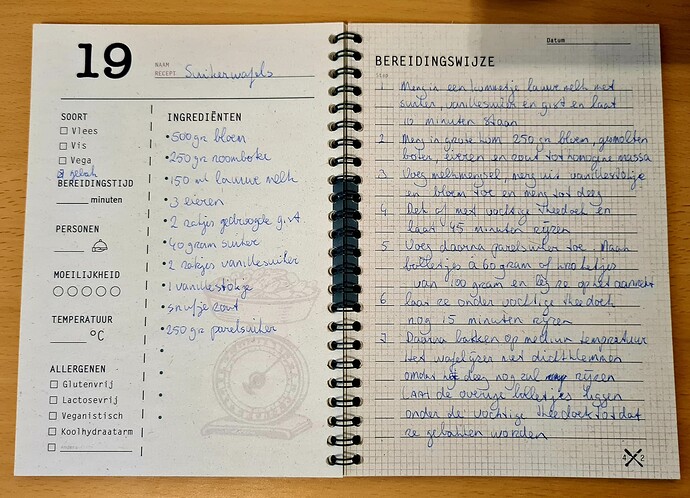 19
NAAM
RECEPT Suikerwafels
SOORT
Vlees
Vis
Vega
gebak
BEREIDINGSTIJD
minuten
PERSONEN
MOEILIJKHEID
TEMPERATUUR
°C
ALLERGENEN
Glutenvrij
Lactosevrij
Veganistisch
Koolhydraatarm
INGREDIËNTEN
• 500 gr bloem
• 250 gr roomboter
• 150 ml lauwe melk
• 3 eieren
• 2 zakjes gedroogde gist
• 40 gram suiker
• 2 zakjes vanillesuiker
• 1 vanillestokje
• snufje zout
• 250 gr parelsuiker
Datum
BEREIDINGSWIJZE
Stap
1 Meng in een kommetje lauwe melk met
suiker, vanillesuiker en gist en laat
10 minuten staan
2 Meng in grote kom 250 gr bloem, gesmolten
boter, eieren en zout tot homogene massa
3 Voeg melkmengsel, merg uit vanillestokje
en bloem toe en meng tot deeg
4 Dek af met vochtige theedoek en
laat 45 minuten rijzen
5 Voeg daarna parelsuiker toe. Maak
bolletjes à 60 gram of
van 100 gram en leg ze op het aanrecht
6 laat ze onder vochtige theedoek
nog 15 minuten rijzen
7 Daarna bakken op medium temperatuur
Het wafelijzer niet dichtklemmen
omdat het deeg nog zal rijzen
Laat de overige bolletjes liggen
onder de vochtige theedoek totdat
ze gebakken worden
4 2